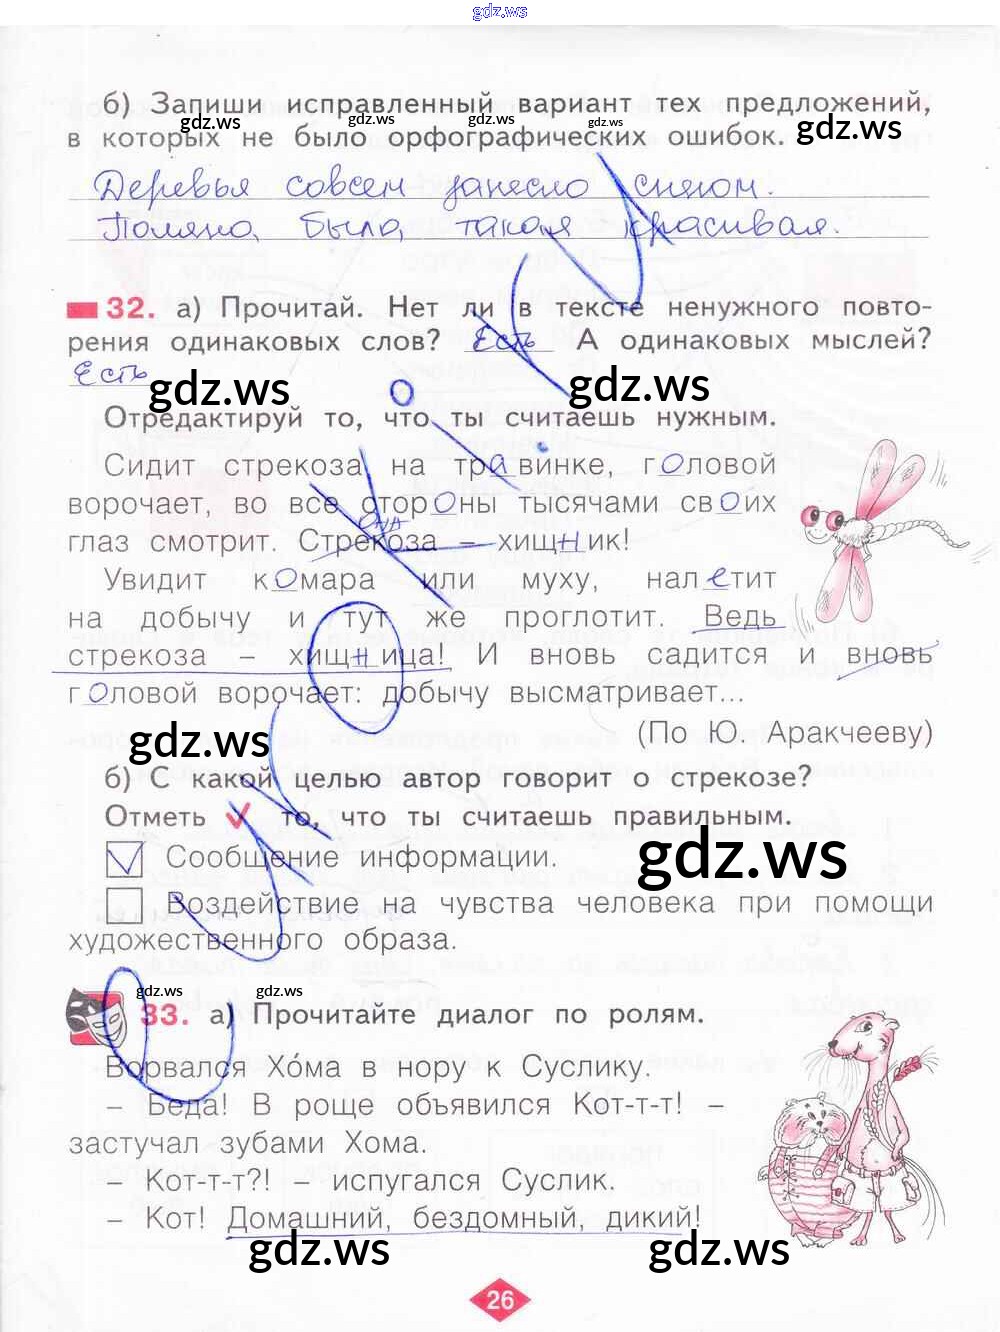 gdz.ws
б) Запиши исправленный вариант тех предложений,
в которых не было орфографических ошибок.
gdz.ws gdz.ws gdz.ws gdz.ws
Деревья совсем занесло снегом.
Поляна была такая красивая.
32. а) Прочитай. Нет ли в тексте ненужного повто-
рения одинаковых слов? Есть А одинаковых мыслей?
Есть
gdz.ws gdz.ws
Отредактируй то, что ты считаешь нужным.
Сидит стрекоза на травинке, головой
ворочает, во все стороны тысячами своих
она
глаз смотрит. Стрекоза – хищник!
Увидит комара или муху, налетит
на добычу и тут же проглотит. Ведь
стрекоза – хищница! И вновь садится и вновь
головой ворочает: добычу высматривает...
gdz.ws
(По Ю. Аракчееву)
б) С какой целью автор говорит о стрекозе?
Отметь то, что ты считаешь правильным.
gdz.ws
Сообщение информации.
Воздействие на чувства человека при помощи
художественного образа.
gdz.ws gdz.ws
33. а) Прочитайте диалог по ролям.
Ворвался Хо́ма в нору к Суслику.
– Беда! В роще объявился Кот-т-т! –
застучал зубами Хома.
– Кот-т-т?! – испугался Суслик.
– Кот! Домашний, бездомный, дикий!
gdz.ws gdz.ws
26